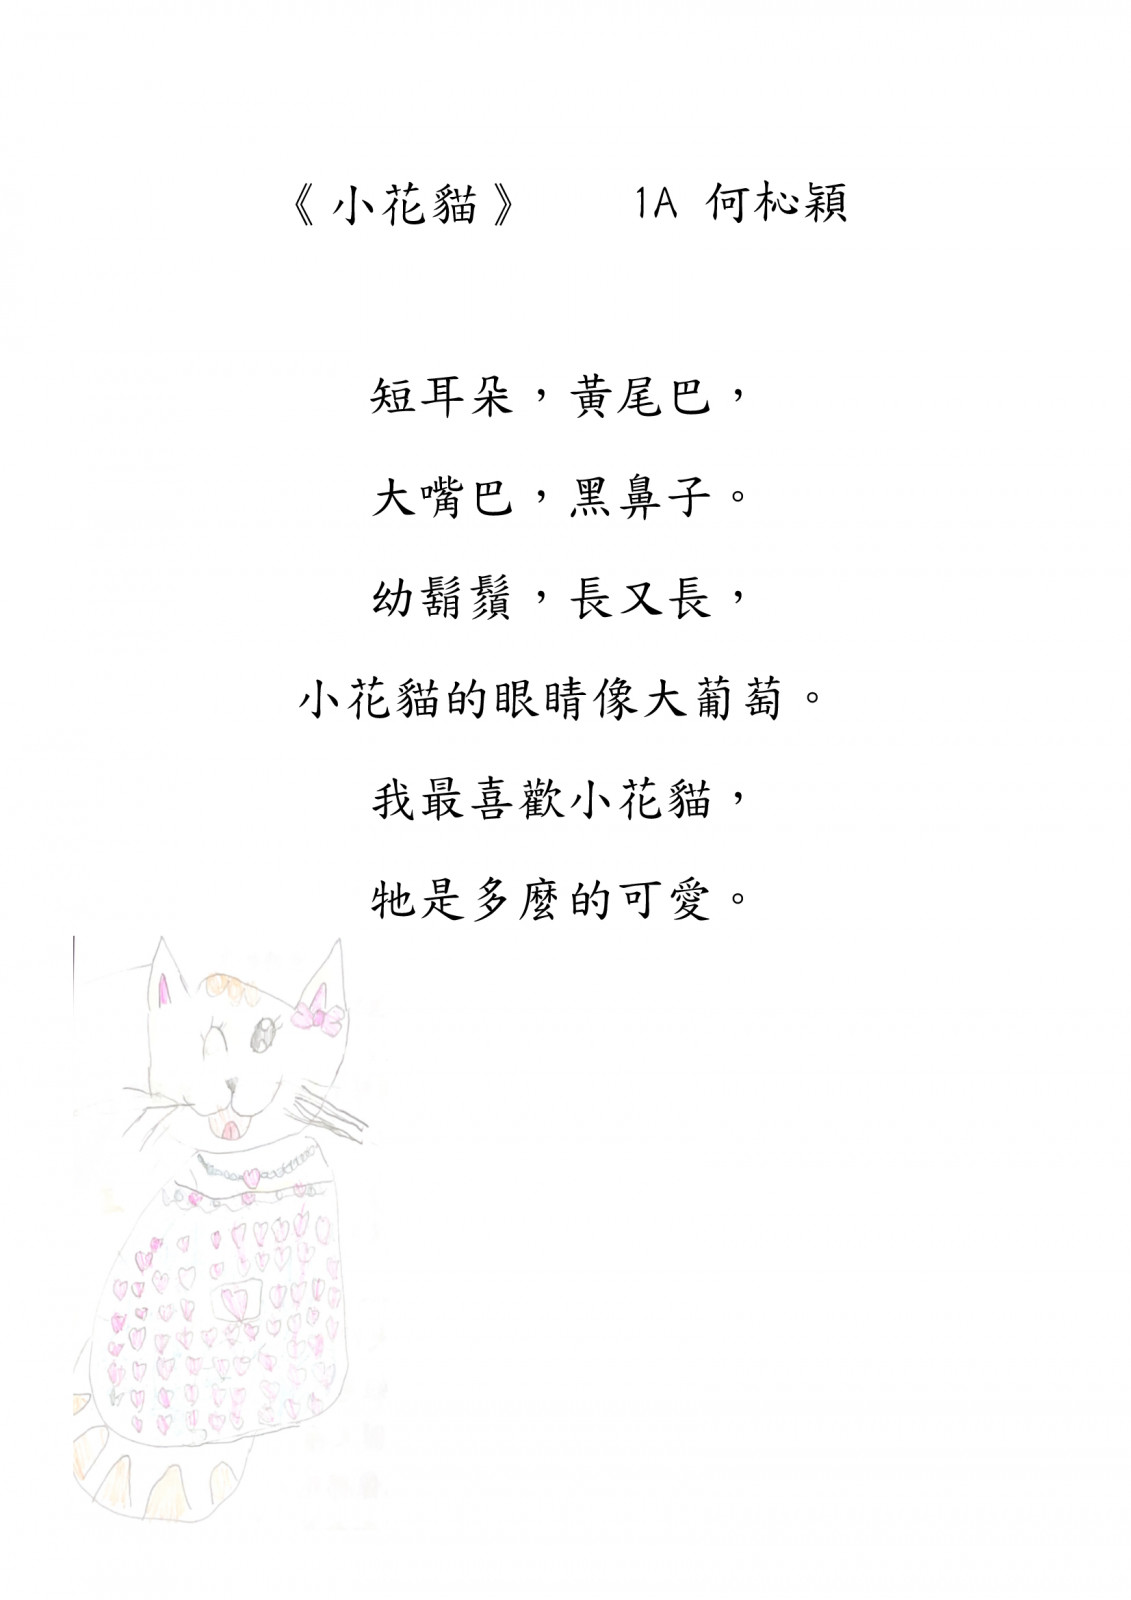 《小花貓》 1A 何杺穎
短耳朵，黃尾巴，
大嘴巴，黑鼻子。
幼鬍鬚，長又長，
小花貓的眼睛像大葡萄。
我最喜歡小花貓，
牠是多麼的可愛。